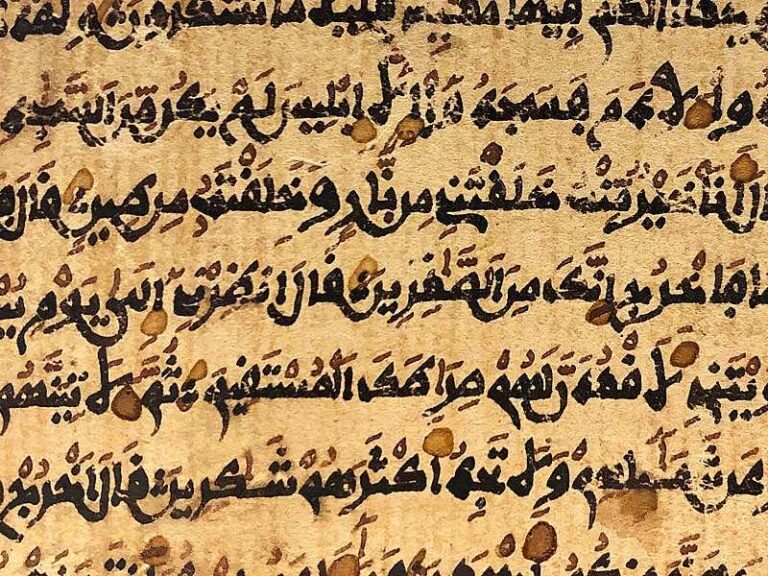 لكم فيها معيش قليلا ما تشكرون ولقد
لادم فسجدوا إلا إبليس لم يكن من السجد
أنا خير منه خلقتني من نار وخلقته من طين قال
فاخرج إنك من الصغرين قال أنظرني إلى يوم
يتني لأقعدن لهم صرطك المستقيم ثم لأتينهم
وعن شملهم ولا تجد أكثرهم شكرين قال اخرج
منكم أجمعين